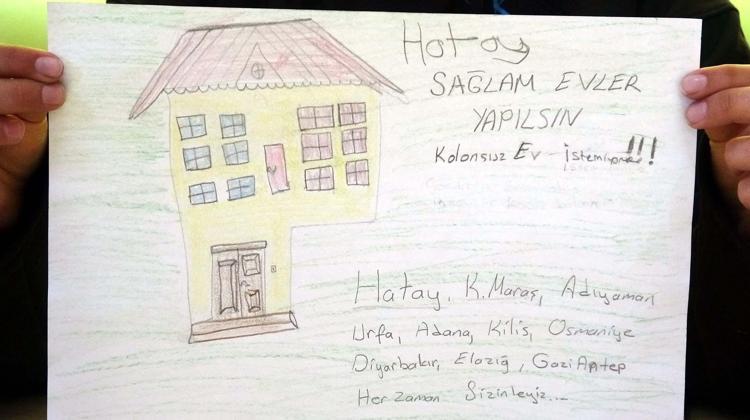 Hatay
SAĞLAM EVLER
YAPILSIN
Kolonsuz Ev istemiyoruz!!!
Hatay, K.Maraş, Adıyaman
Urfa, Adana, Kilis, Osmaniye
Diyarbakır, Elazığ, GaziAntep
Her zaman Sizinleyiz...